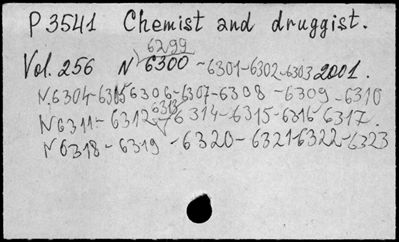 P3541 Chemist and druggist.
6299
Vol. 256 N 6300-6301-6302-6303 2001.
N6304-6305 6306-6307-6308-6309-6310
6313
N6311-6312 6314-6315-6316 6317.
N6318-6319-6320-6321-6322-6323